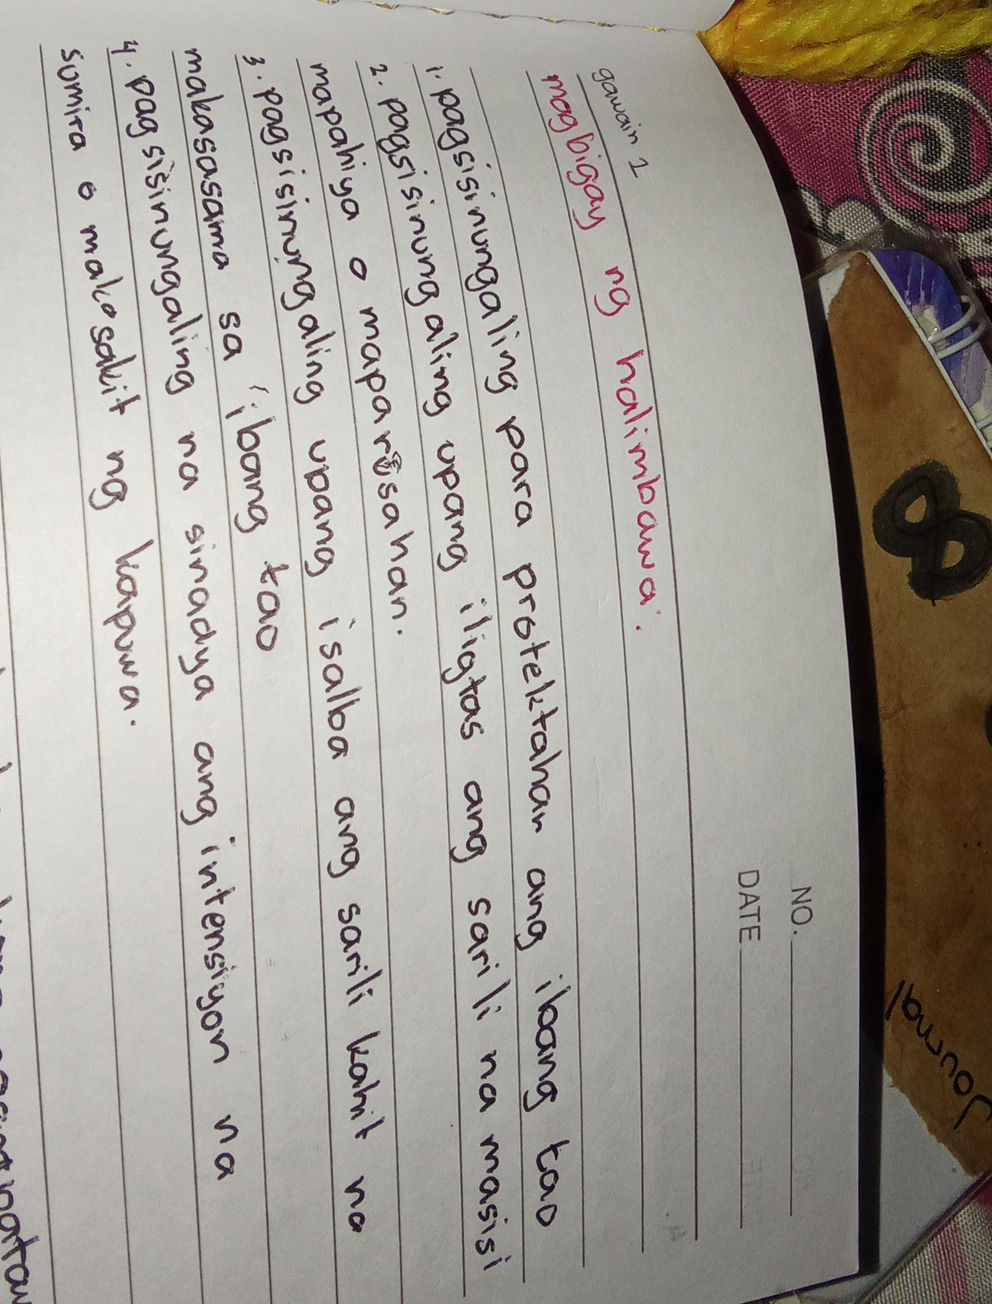 NO.
DATE
gawain 1
magbigay ng halimbawa.
1. pagsisinungaling para protektahan ang ibang tao
2. pagsisinungaling upang iligtas ang sarili na masisi
mapahiya o maparusahan.
3. pagsisinungaling upang isalba ang sarili kahit na
makasasama sa ibang tao
4. pagsisinungaling na sinadya ang intensiyon na
sumira o makasakit ng kapuwa.
8
Journal